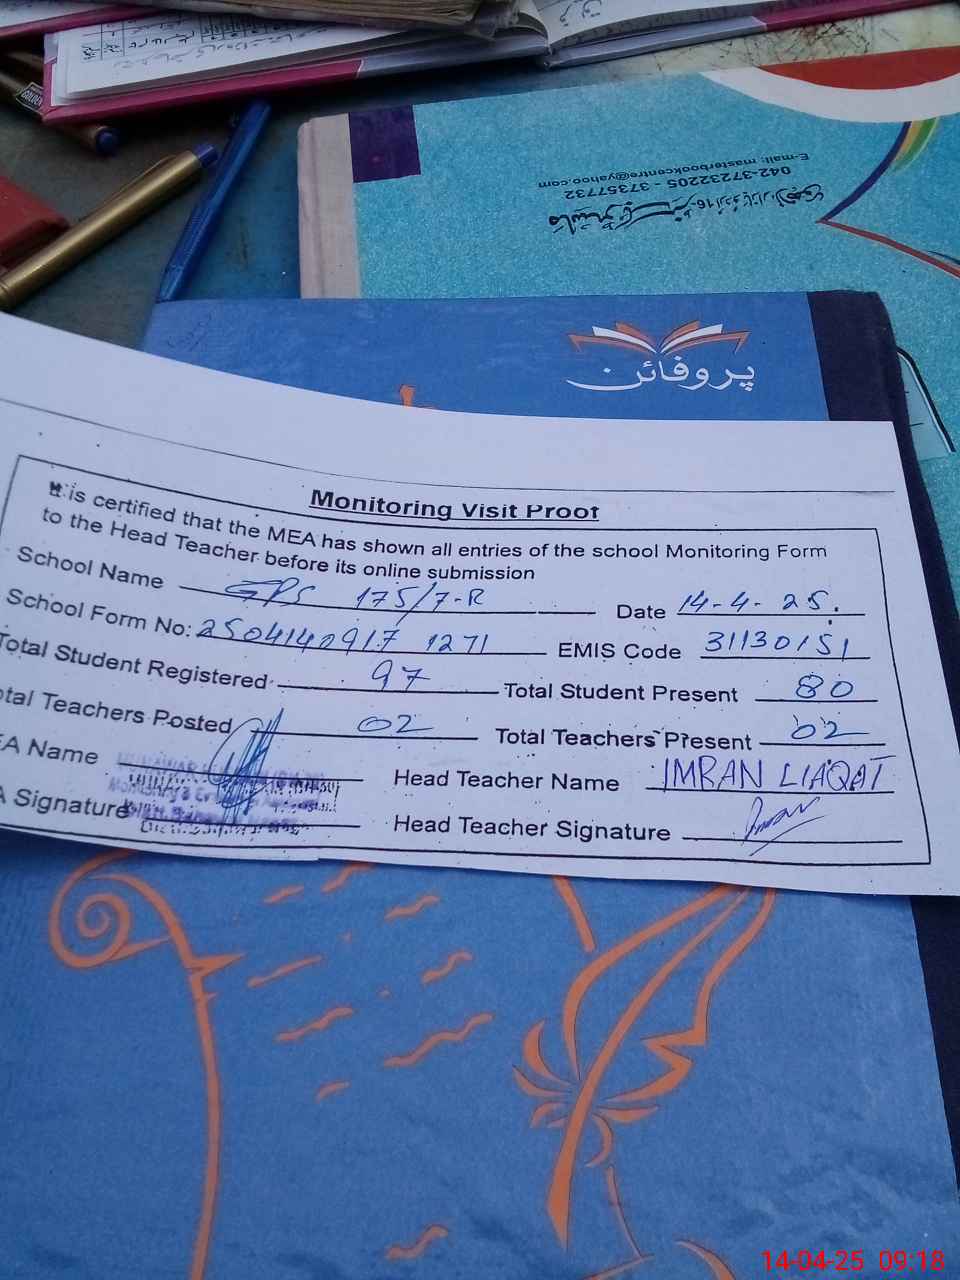 GOLDEN
E-mail: masterbookcentre@yahoo.com
042-37232205 - 37357732
پروفائن
Monitoring Visit Proof
It is certified that the MEA has shown all entries of the school Monitoring Form
to the Head Teacher before its online submission
School Name GPS 175/7-R Date 14-4-25.
School Form No: 2504140917 1271 EMIS Code 31130151
Total Student Registered 97 Total Student Present 80
tal Teachers Posted 02 Total Teachers Present 02
EA Name Head Teacher Name IMRAN LIAQAT
A Signature Head Teacher Signature Imran
14-04-25 09:18